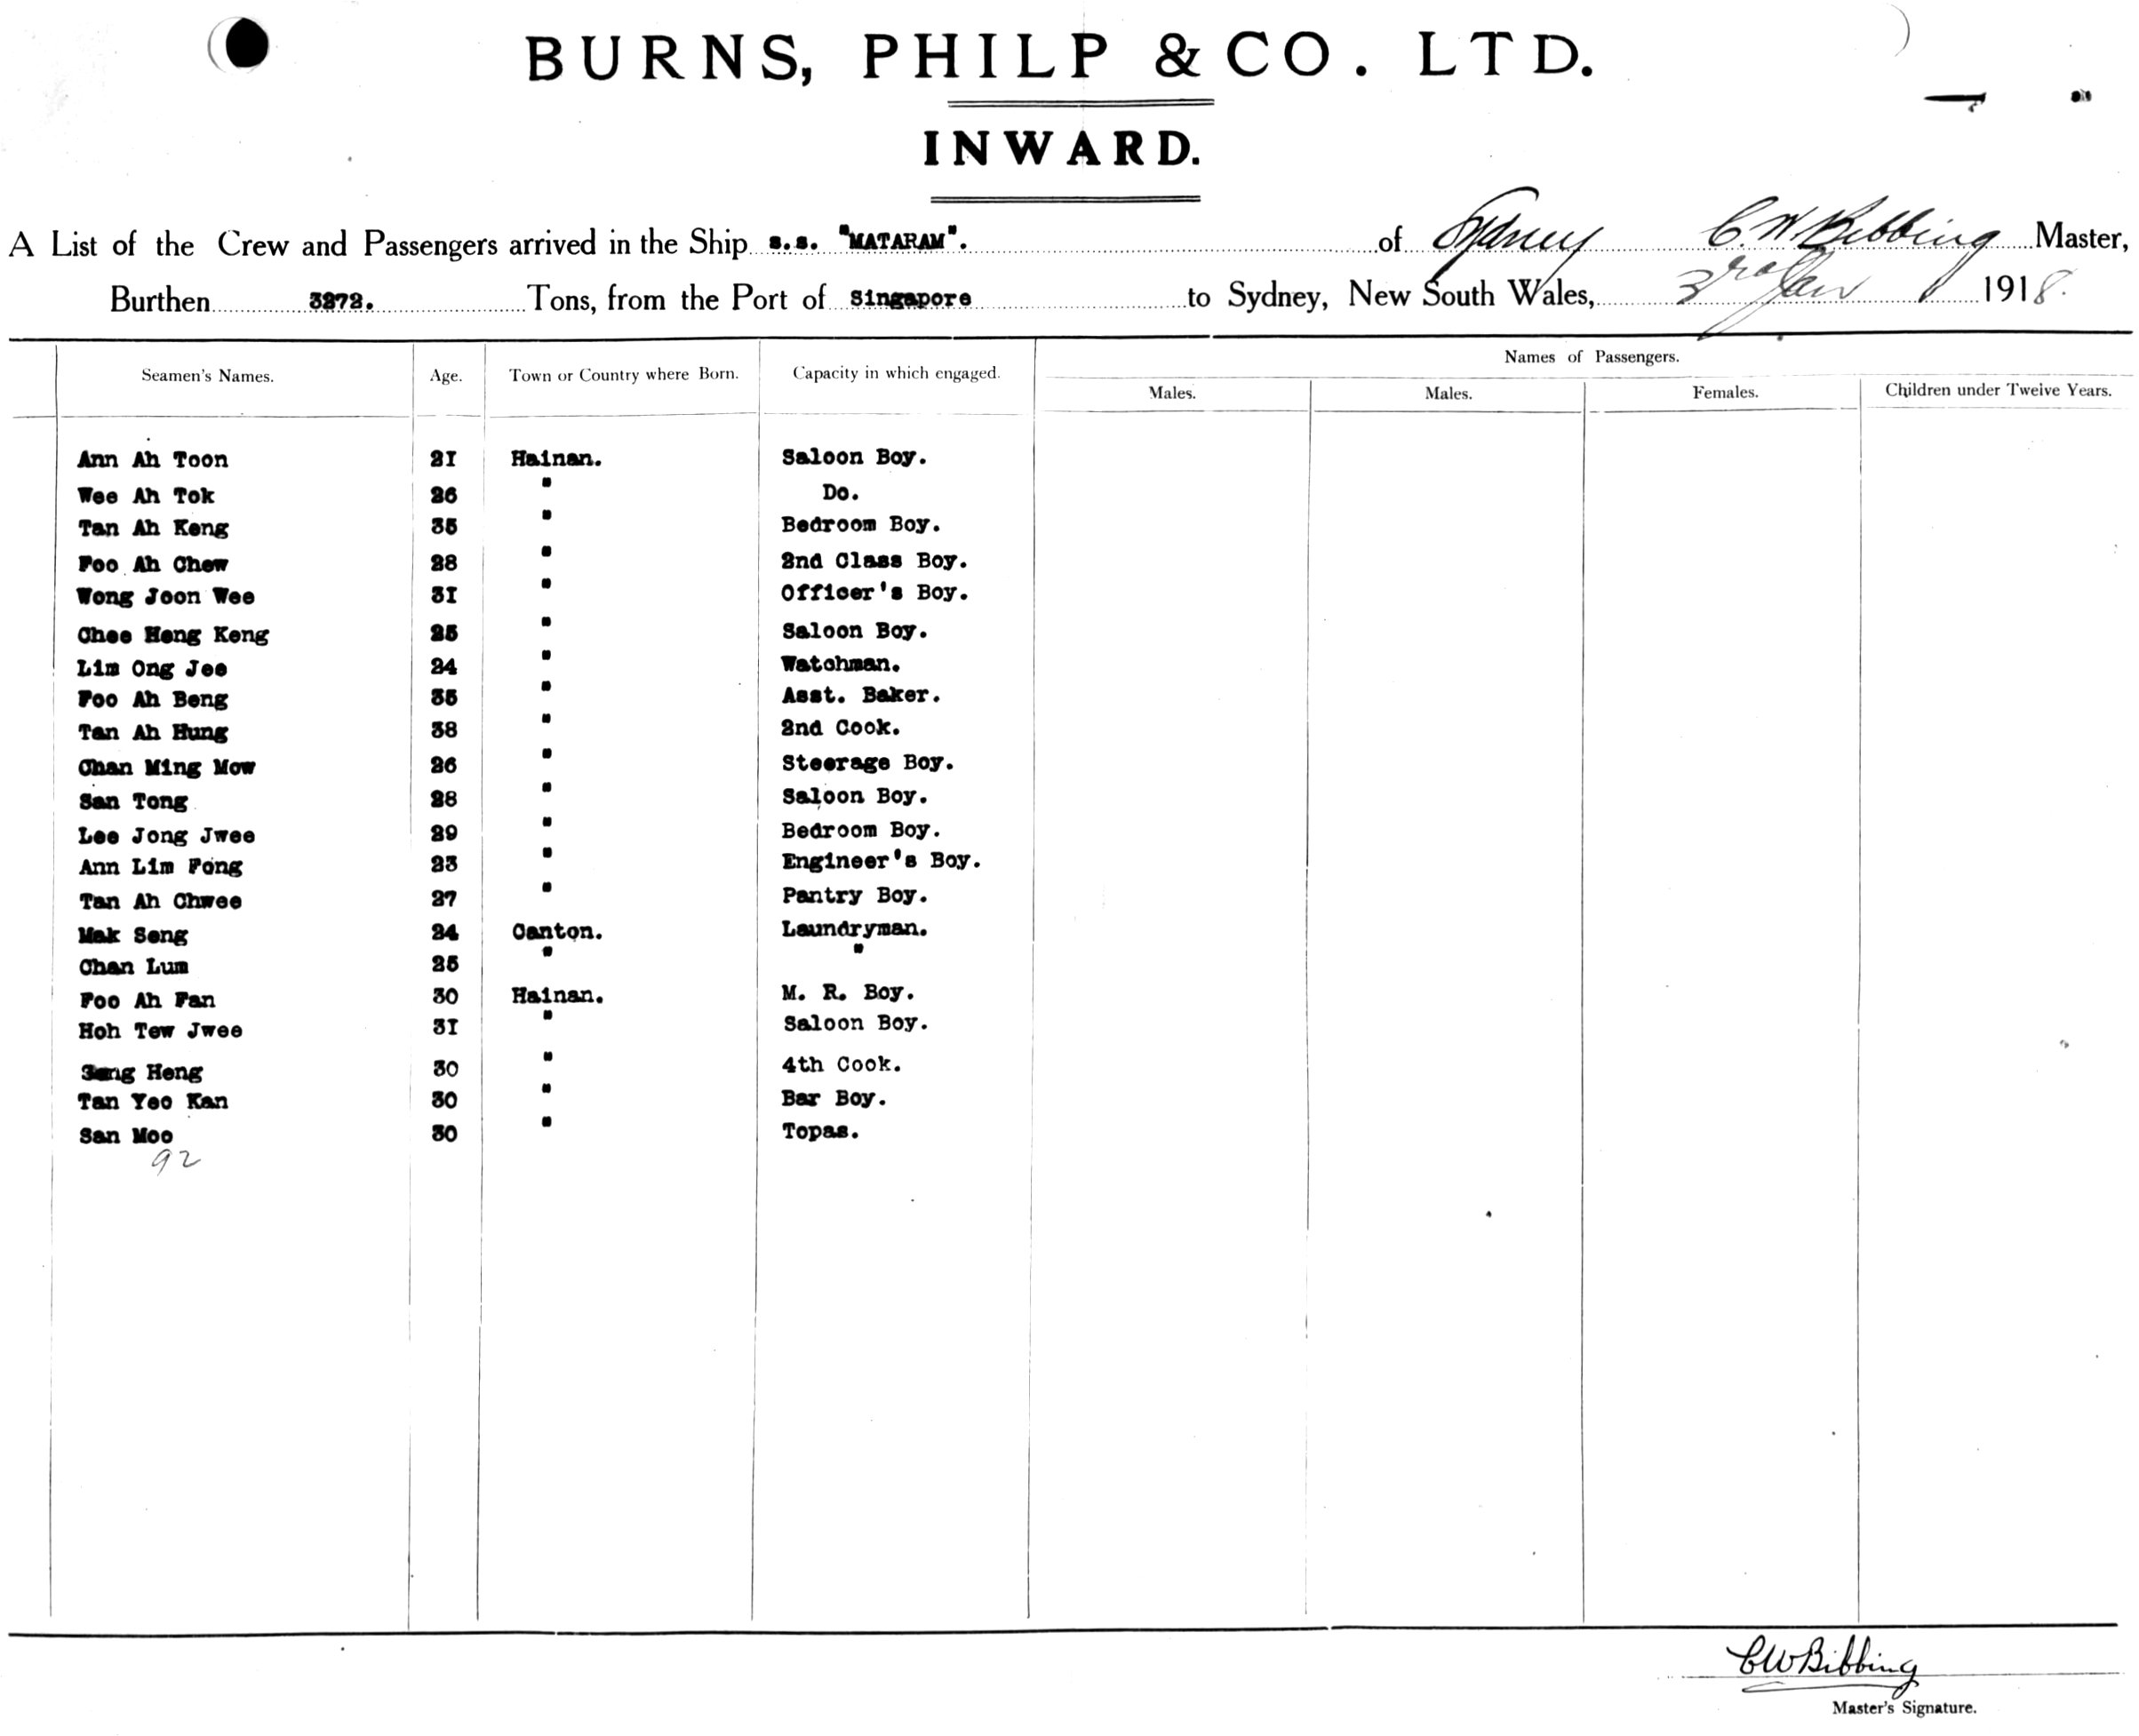 BURNS, PHILP & CO. LTD.
INWARD.
A List of the Crew and Passengers arrived in the Ship s.s. "MATARAM". of Sydney C. W. Bibbing Master,
Burthen 3272. Tons, from the Port of Singapore to Sydney, New South Wales, 3rd Jan 1918.
Names of Passengers.
Seamen's Names. Age. Town or Country where Born. Capacity in which engaged. Males. Males. Females. Children under Twelve Years.
Ann Ah Toon 21 Hainan. Saloon Boy.
Wee Ah Tok 26 " Do.
Tan Ah Keng 35 " Bedroom Boy.
Foo Ah Chew 28 " 2nd Class Boy.
Wong Joon Wee 31 " Officer's Boy.
Chee Heng Keng 25 " Saloon Boy.
Lim Ong Jee 24 " Watchman.
Foo Ah Beng 35 " Asst. Baker.
Tan Ah Hung 38 " 2nd Cook.
Chan Ming Mow 26 " Steerage Boy.
San Tong 28 " Saloon Boy.
Lee Jong Jwee 29 " Bedroom Boy.
Ann Lim Fong 23 " Engineer's Boy.
Tan Ah Chwee 27 " Pantry Boy.
Mak Seng 24 Canton. Laundryman.
Chan Lum 25 " "
Foo Ah Fan 30 Hainan. M. R. Boy.
Hoh Tew Jwee 31 " Saloon Boy.
Heng 30 " 4th Cook.
Tan Yeo Kan 30 " Bar Boy.
San Moo 30 " Topas.
92
CWBibbing
Master's Signature.